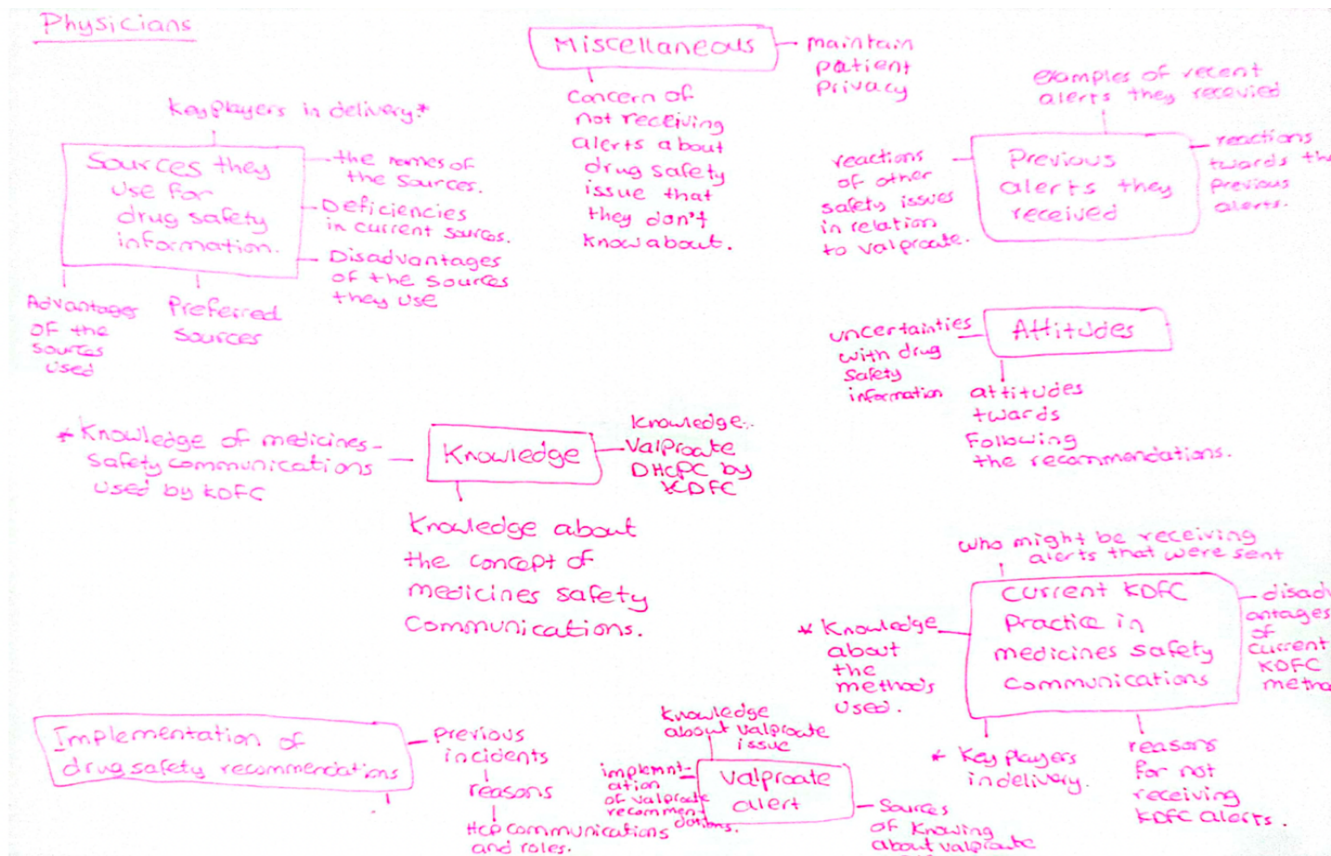 Physicians
Miscellaneous
maintain
patient
privacy
Concern of
not receiving
alerts about
drug safety
issue that
they don't
know about.
Key players in delivery*
Sources they
use for
drug safety
information.
the names of
the sources.
Deficiencies
in current sources.
Disadvantages
of the sources
they use
Advantages
of the
sources
used
Preferred
sources
examples of recent
alerts they recevied
Previous
alerts they
received
reactions
towards the
previous
alerts.
reactions
of other
safety issues
in relation
to valproate.
Attitudes
uncertainties
with drug
safety
information
attitudes
twards
Following
the recommendations.
* Knowledge of medicines-
safety communications
used by KDFC
Knowledge
Knowledge
Valproate
DHCPC by
KDFC
Knowledge about
the concept of
medicines safety
communications.
who might be receiving
alerts that were sent
current KDFC
Practice in
medicines safety
communications
disadv
antages
of
current
KDFC
metho
* Knowledge
about
the
methods
used.
* Key players
in delivery.
reasons
for not
receiving
KDFC alerts.
Implementation of
drug safety recommendations
previous
incidents
reasons
HCP communications
and roles.
Knowledge
about valproate
issue
Valproate
alert
implemnt-
ation
of valproate
recommen-
dations.
Sources
of knowing
about valproate